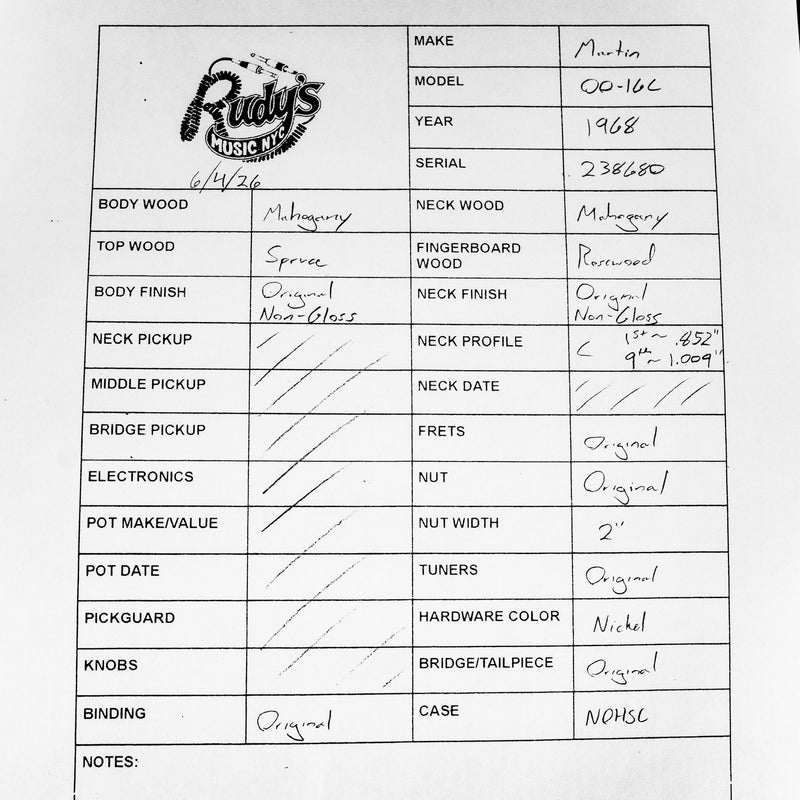 Rudy's
MUSIC NYC
6/4/26
MAKE Martin
MODEL 00-16C
YEAR 1968
SERIAL 238680
BODY WOOD Mahogany
NECK WOOD Mahogany
TOP WOOD Spruce
FINGERBOARD
WOOD Rosewood
BODY FINISH Original
Non-Gloss
NECK FINISH Original
Non-Gloss
NECK PICKUP
NECK PROFILE C 1st ~ .852"
9th ~ 1.009"
MIDDLE PICKUP
NECK DATE
BRIDGE PICKUP
FRETS Original
ELECTRONICS
NUT Original
POT MAKE/VALUE
NUT WIDTH 2"
POT DATE
TUNERS Original
PICKGUARD
HARDWARE COLOR Nickel
KNOBS
BRIDGE/TAILPIECE Original
BINDING Original
CASE NOHSC
NOTES: